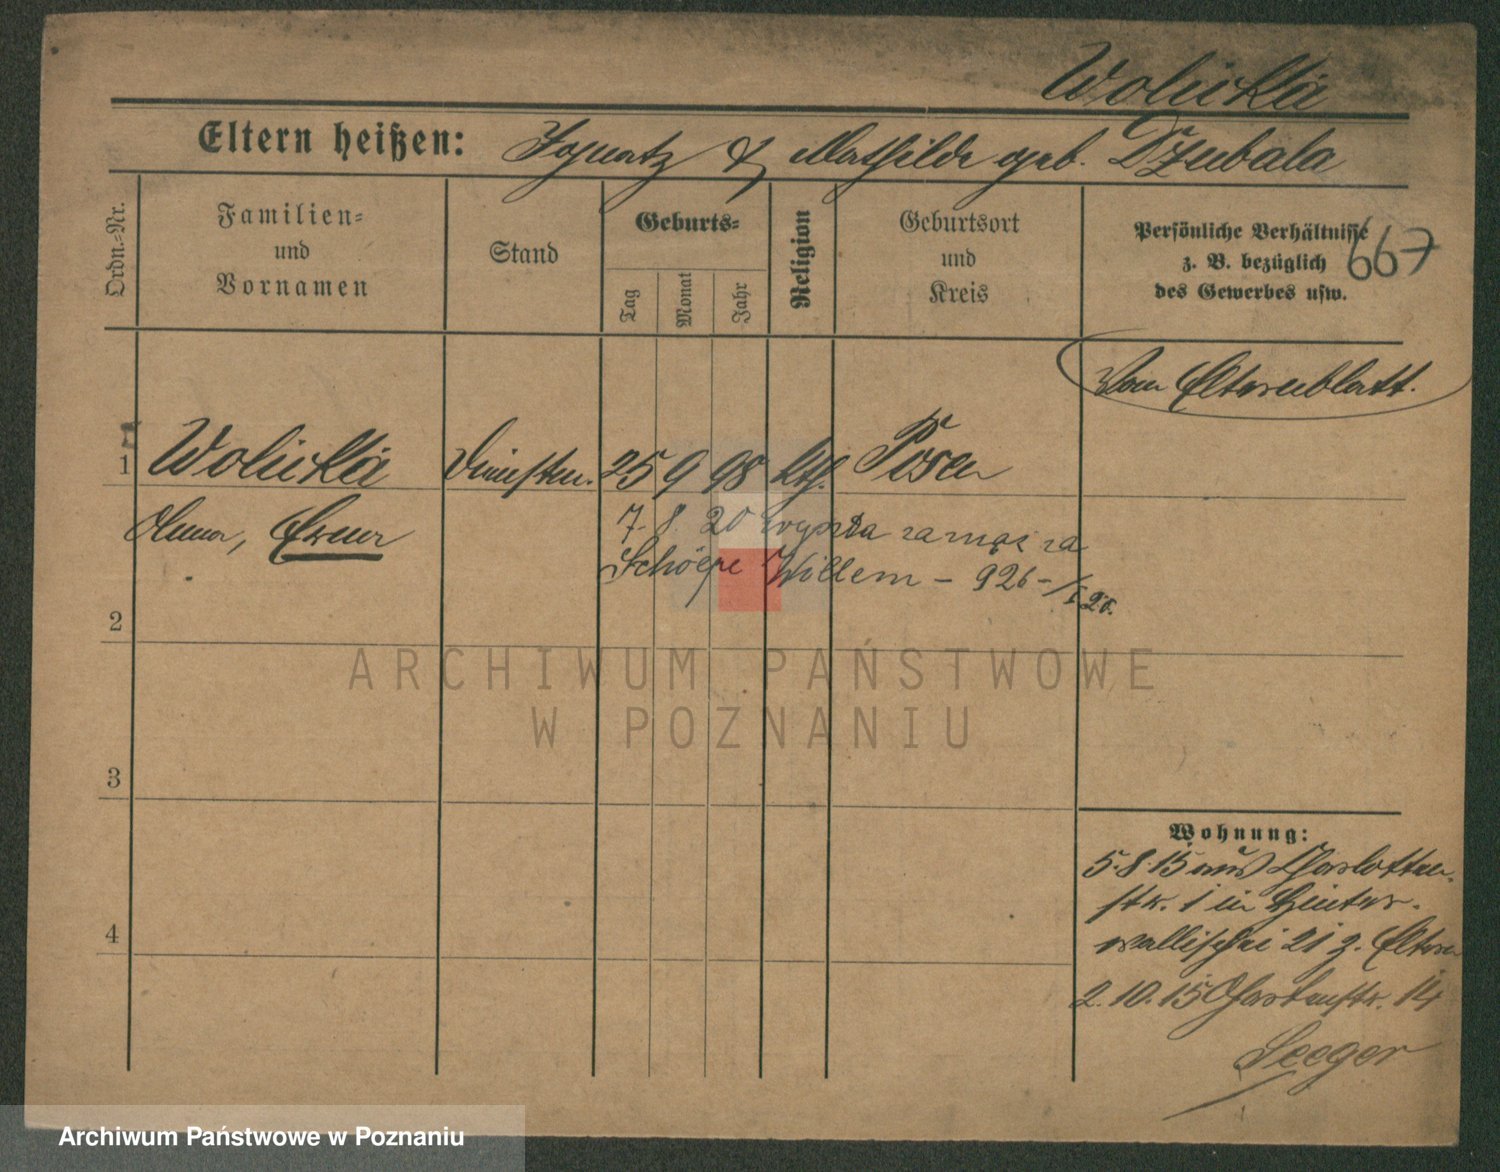 Wolicka
Eltern heißen: Ignatz & Mathilde geb. Dzubala
Ordn.=Nr.
Familien=
und
Vornamen
Stand
Geburts=
Tag
Monat
Jahr
Religion
Geburtsort
und
Kreis
Persönliche Verhältnisse
z. B. bezüglich
des Gewerbes usw.
667
Vom Elternblatt.
1 Wolicka 25 9 98 kth. Posen
Anna,
7. 8. 20 wyszła za mąż za
Schöepe Willem - 926 -
2
ARCHIWUM PAŃSTWOWE
W POZNANIU
3
Wohnung:
5.8.15 aus Charlotten-
str. 1 in Hinter-
wallischei 21 z. Eltern
4
2.10.15 Gartenstr. 14
Seeger
Archiwum Państwowe w Poznaniu